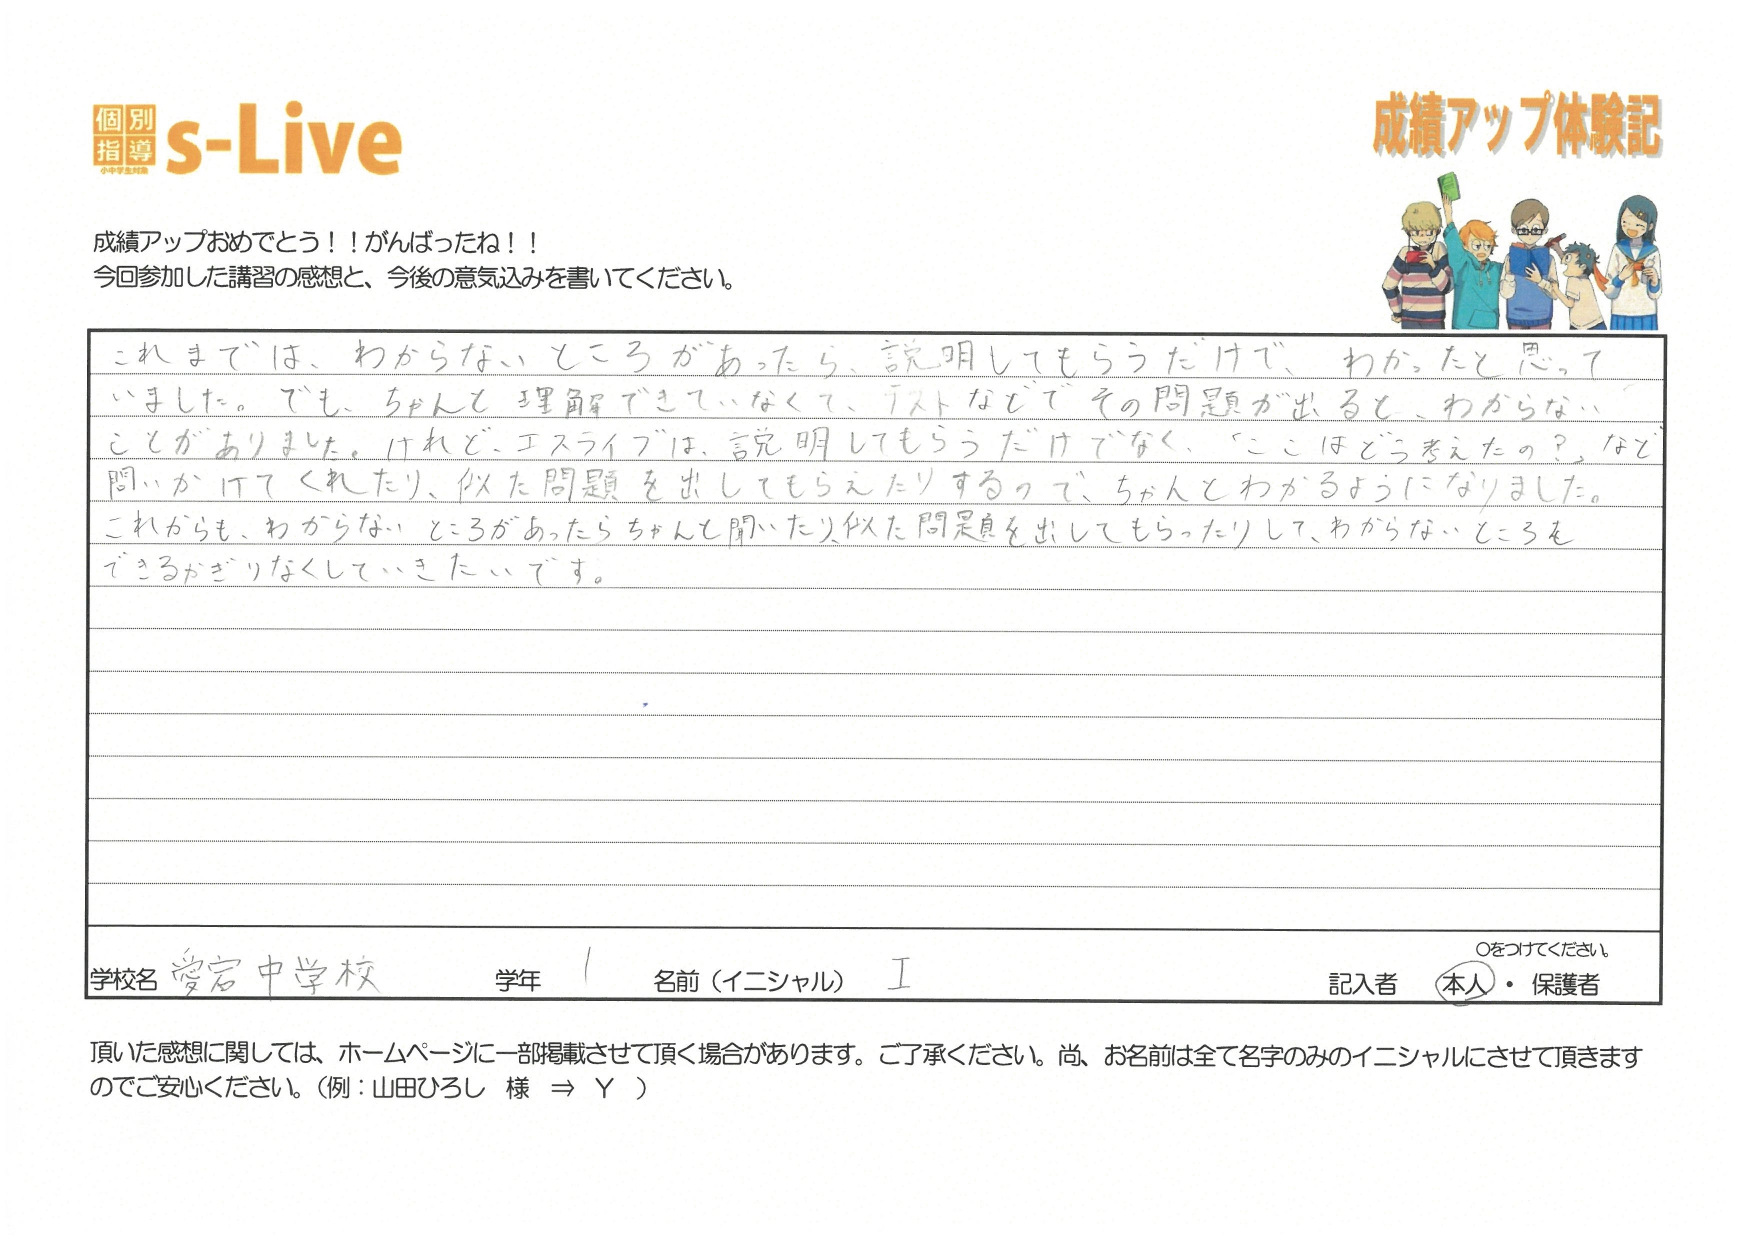 個別指導
小中学生対象
s-Live
成績アップ体験記
成績アップおめでとう！！がんばったね！！
今回参加した講習の感想と、今後の意気込みを書いてください。
これまでは、わからないところがあったら、説明してもらうだけで、わかったと思って
いました。でも、ちゃんと理解できていなくて、テストなどでその問題が出ると、わからない
ことがありました。けれど、エスライブは、説明してもらうだけでなく、「ここはどう考えたの？」など
問いかけてくれたり、似た問題を出してもらえたりするので、ちゃんとわかるようになりました。
これからも、わからないところがあったらちゃんと聞いたり、似た問題を出してもらったりして、わからないところを
できるかぎりなくしていきたいです。
〇をつけてください。
学校名 愛宕中学校 学年 1 名前（イニシャル） I 記入者 本人 ・ 保護者
頂いた感想に関しては、ホームページに一部掲載させて頂く場合があります。ご了承ください。尚、お名前は全て名字のみのイニシャルにさせて頂きます
のでご安心ください。（例：山田ひろし 様 ⇒ Y ）